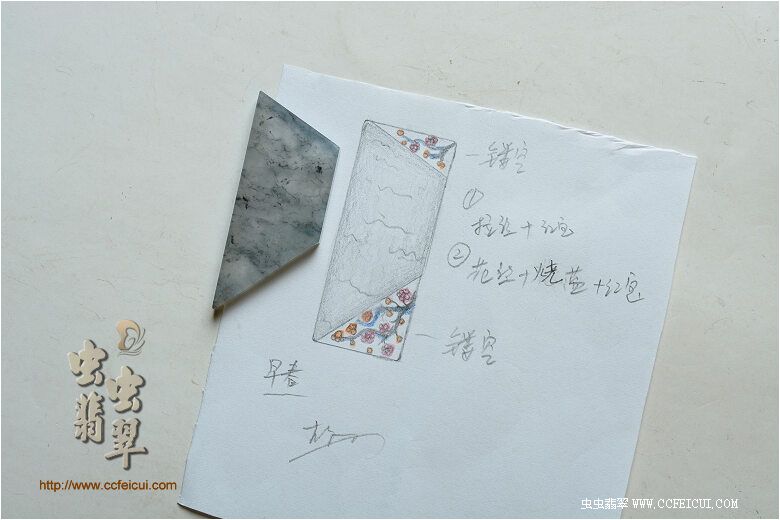 镂空
①
拉丝+红宝
②
花丝+烧蓝+红宝
镂空
早春
虫虫翡翠
http://www.ccfeicui.com
虫虫翡翠 WWW.CCFEICUI.COM